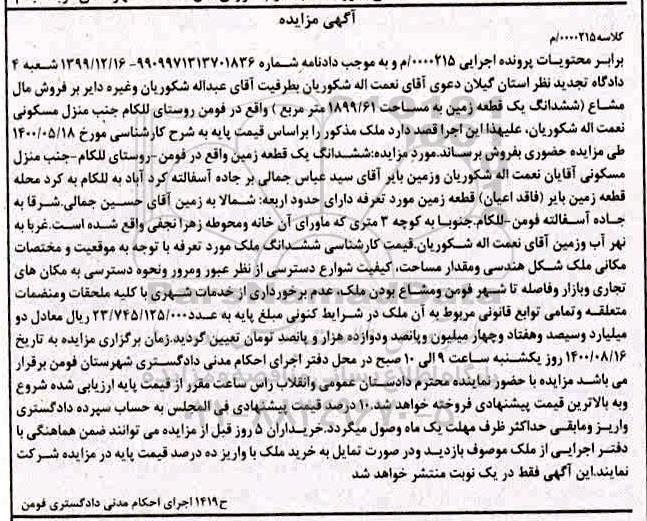 آگهی مزایده
کلاسه ۰۰۰۰۲۱۵/م
برابر محتویات پرونده اجرایی ۰۰۰۰۲۱۵/م و به موجب دادنامه شماره ۹۹۰۹۹۷۱۳۱۳۷۰۱۸۳۶-۱۳۹۹/۱۲/۱۶ شعبه ۴
دادگاه تجدید نظر استان گیلان دعوی آقای نعمت اله شکوریان بطرفیت آقای عبداله شکوریان وغیره دایر بر فروش مال
مشاع (ششدانگ یک قطعه زمین به مساحت ۱۸۹۹/۶۱ متر مربع ) واقع در فومن روستای للکام جنب منزل مسکونی
نعمت اله شکوریان، علیهذا این اجرا قصد دارد ملک مذکور را براساس قیمت پایه به شرح کارشناسی مورخ ۱۴۰۰/۰۵/۱۸
طی مزایده حضوری بفروش برساند.مورد مزایده:ششدانگ یک قطعه زمین واقع در فومن-روستای للکام-جنب منزل
مسکونی آقایان نعمت اله شکوریان وزمین بایر آقای سید عباس جمالی بر جاده آسفالته کرد آباد به للکام به کرد محله
قطعه زمین بایر (فاقد اعیان) قطعه زمین مورد تعرفه دارای حدود اربعه: شمالا به زمین آقای حسین جمالی.شرقا به
جاده آسفالته فومن-للکام.جنوبا به کوچه ۳ متری که ماورای آن خانه ومحوطه زهرا نجفی واقع شده است.غربا به
نهر آب وزمین آقای نعمت اله شکوریان.قیمت کارشناسی ششدانگ ملک مورد تعرفه با توجه به موقعیت و مختصات
مکانی ملک شکل هندسی ومقدار مساحت، کیفیت شوارع دسترسی از نظر عبور ومرور ونحوه دسترسی به مکان های
تجاری وبازار وفاصله تا شهر فومن ومشاع بودن ملک، عدم برخورداری از خدمات شهری با کلیه ملحقات ومنضمات
متعلقه وتمامی توابع قانونی مربوط به آن ملک در شرایط کنونی مبلغ پایه به عدد۲۳/۷۴۵/۱۲۵/۰۰۰ ریال معادل دو
میلیارد وسیصد وهفتاد وچهار میلیون وپانصد ودوازده هزار و پانصد تومان تعیین گردید.زمان برگزاری مزایده به تاریخ
۱۴۰۰/۰۸/۱۶ روز یکشنبه ساعت ۹ الی ۱۰ صبح در محل دفتر اجرای احکام مدنی دادگستری شهرستان فومن برقرار
می باشد مزایده با حضور نماینده محترم دادستان عمومی وانقلاب راس ساعت مقرر از قیمت پایه ارزیابی شده شروع
وبه بالاترین قیمت پیشنهادی فروخته خواهد شد.۱۰ درصد قیمت پیشنهادی فی المجلس به حساب سپرده دادگستری
واریز ومابقی حداکثر ظرف مهلت یک ماه وصول میگردد.خریداران ۵ روز قبل از مزایده می توانند ضمن هماهنگی با
دفتر اجرایی از ملک موصوف بازدید ودر صورت تمایل به خرید ملک با واریز ده درصد قیمت پایه در مزایده شرکت
نمایند.این آگهی فقط در یک نوبت منتشر خواهد شد
ح۱۴۱۹ اجرای احکام مدنی دادگستری فومن